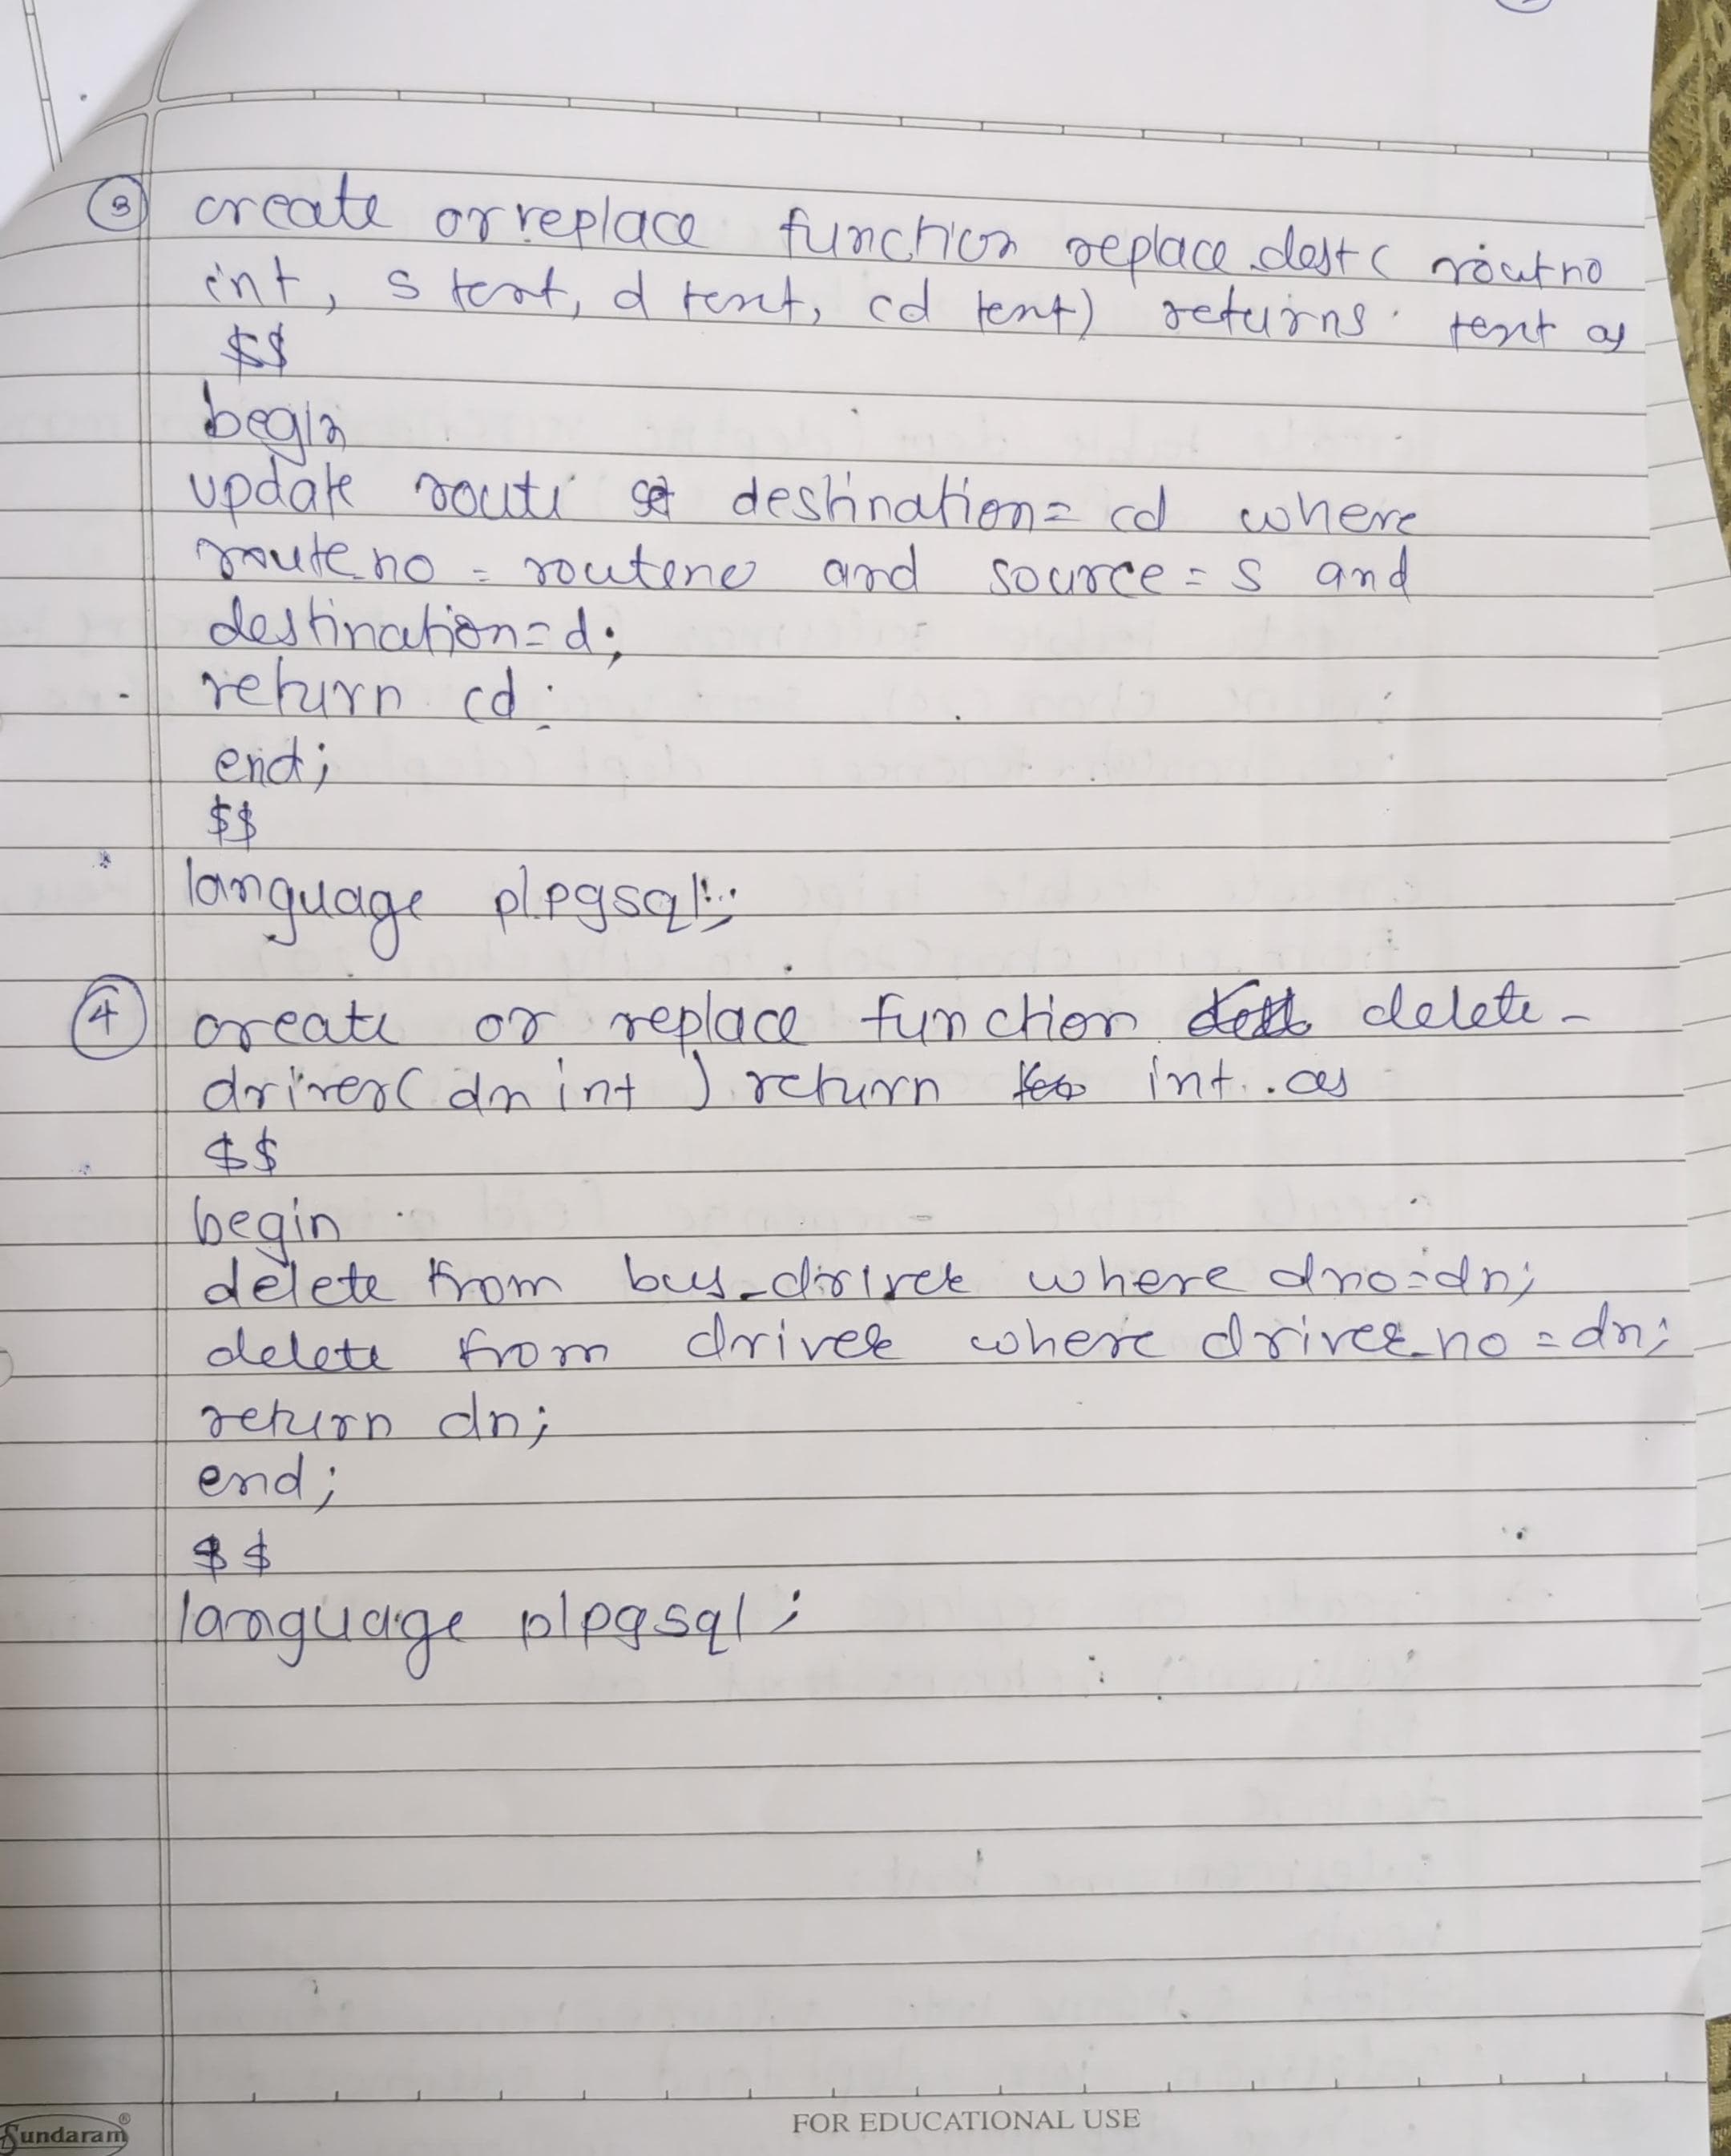 ③ create or replace function replace_dest( routno
int, s text, d text, cd text) returns text as
$$
begin
update route set destination= cd where
route_no = routeno and source = s and
destination=d;
return cd;
end;
$$
language plpgsql;
④ create or replace function delete-
driver( dn int ) return int as
$$
begin
delete from bus_driver where dno=dn;
delete from driver where driver_no = dn;
return dn;
end;
$$
language plpgsql;
Sundaram®
FOR EDUCATIONAL USE